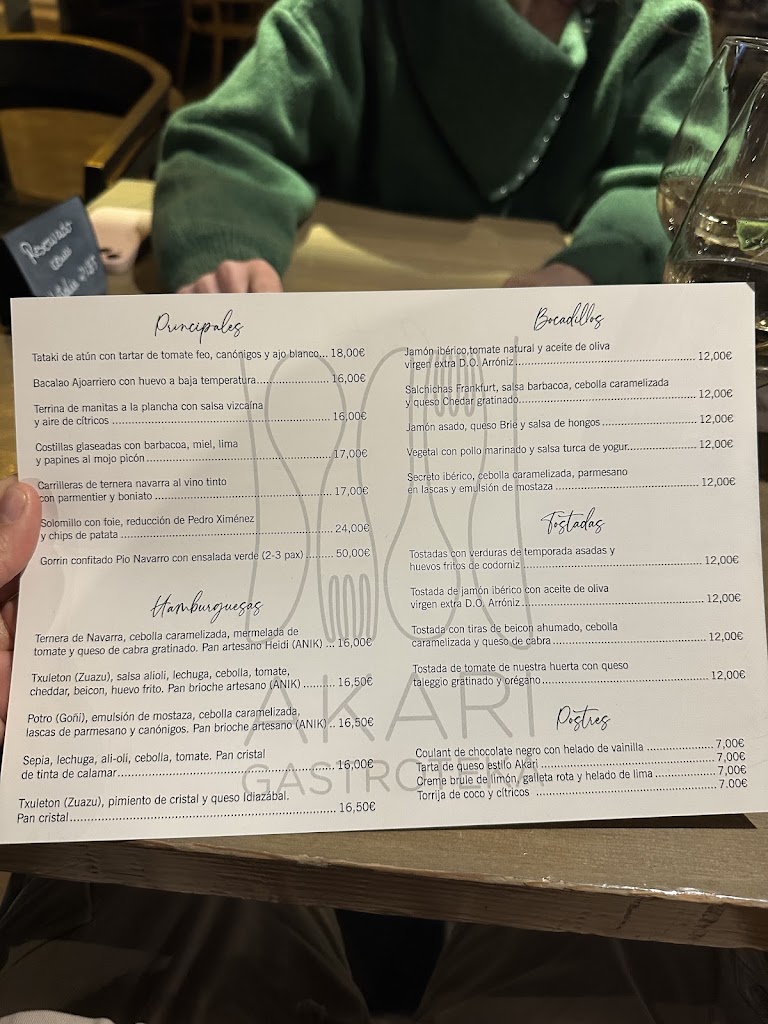 Reservado
Principales
Tataki de atún con tartar de tomate feo, canónigos y ajo blanco... 18,00€
Bacalao Ajoarriero con huevo a baja temperatura........................ 16,00€
Terrina de manitas a la plancha con salsa vizcaína
y aire de cítricos ........................ 16,00€
Costillas glaseadas con barbacoa, miel, lima
y papines al mojo picón........................ 17,00€
Carrilleras de ternera navarra al vino tinto
con parmentier y boniato ........................ 17,00€
Solomillo con foie, reducción de Pedro Ximénez
y chips de patata ........................ 24,00€
Gorrin confitado Pio Navarro con ensalada verde (2-3 pax) ......... 50,00€
Hamburguesas
Ternera de Navarra, cebolla caramelizada, mermelada de
tomate y queso de cabra gratinado. Pan artesano Heidi (ANIK) ... 16,00€
Txuleton (Zuazu), salsa alioli, lechuga, cebolla, tomate,
cheddar, beicon, huevo frito. Pan brioche artesano (ANIK) .......... 16,50€
Potro (Goñi), emulsión de mostaza, cebolla caramelizada,
lascas de parmesano y canónigos. Pan brioche artesano (ANIK) .. 16,50€
Sepia, lechuga, ali-oli, cebolla, tomate. Pan cristal
de tinta de calamar........................ 16,00€
Txuleton (Zuazu), pimiento de cristal y queso Idiazábal.
Pan cristal........................ 16,50€
Bocadillos
Jamón ibérico,tomate natural y aceite de oliva
virgen extra D.O. Arróniz........................ 12,00€
Salchichas Frankfurt, salsa barbacoa, cebolla caramelizada
y queso Chedar gratinado........................ 12,00€
Jamón asado, queso Brie y salsa de hongos........................ 12,00€
Vegetal con pollo marinado y salsa turca de yogur........................ 12,00€
Secreto ibérico, cebolla caramelizada, parmesano
en lascas y emulsión de mostaza ........................ 12,00€
Tostadas
Tostadas con verduras de temporada asadas y
huevos fritos de codorniz ........................ 12,00€
Tostada de jamón ibérico con aceite de oliva
virgen extra D.O. Arróniz........................ 12,00€
Tostada con tiras de beicon ahumado, cebolla
caramelizada y queso de cabra ........................ 12,00€
Tostada de tomate de nuestra huerta con queso
taleggio gratinado y orégano........................ 12,00€
Postres
Coulant de chocolate negro con helado de vainilla .................. 7,00€
Tarta de queso estilo Akari ........................ 7,00€
Creme brule de limón, galleta rota y helado de lima .................. 7,00€
Torrija de coco y cítricos ........................ 7.00€
AKARI
GASTROTEKA